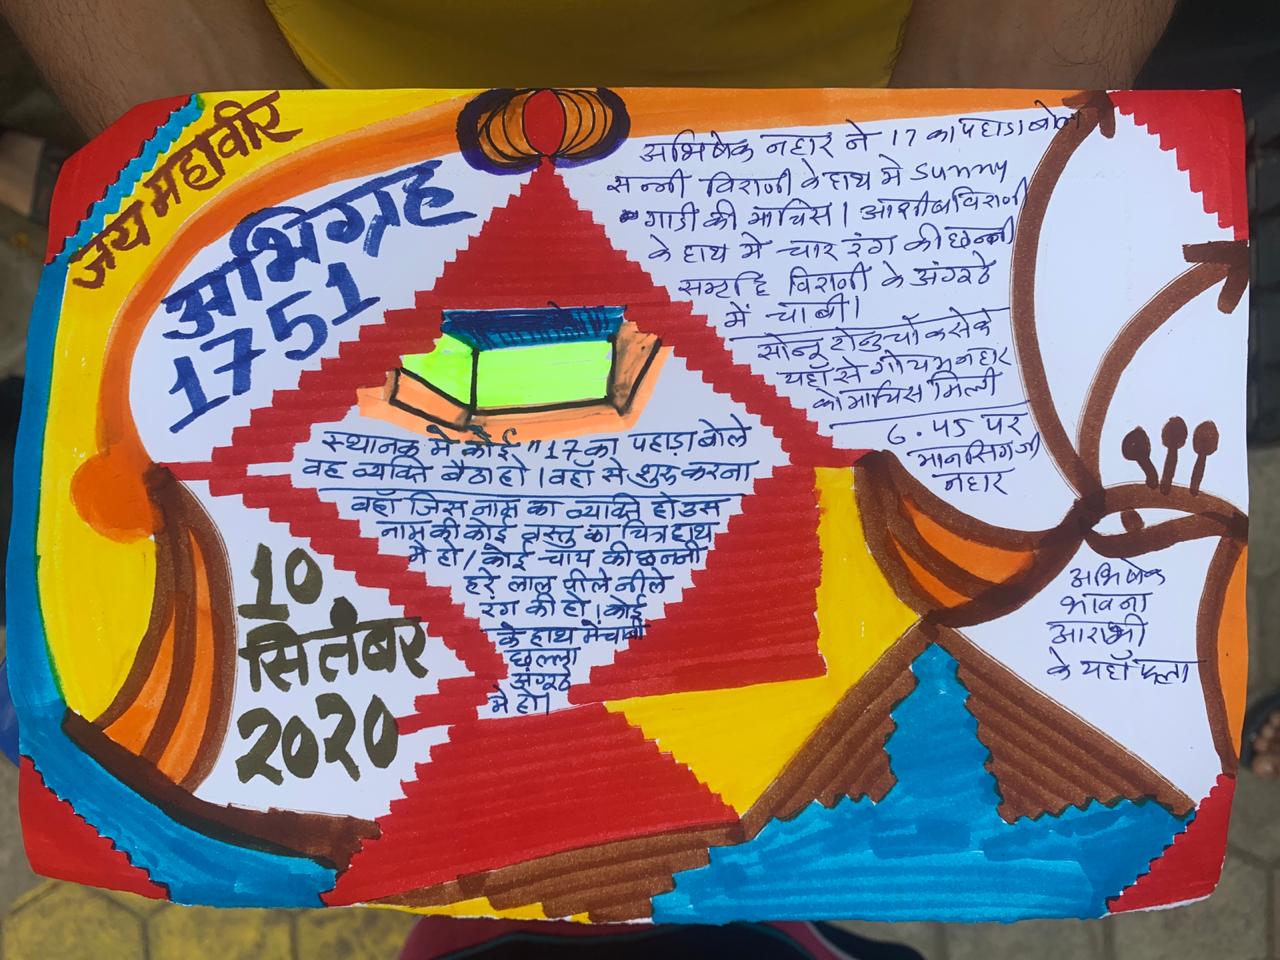 जय महावीर
अभिग्रह
1751
स्थानक मे कोई "17 का पहाड़ा बोले
वह व्यक्ति बैठा हो । वहाँ से शुरू करना
वहाँ जिस नाम का व्यक्ति हो उस
नाम की कोई वस्तु का चित्र हाथ
मे हो / कोई चाय की छननी
हरे लाल पीले नीले
रंग की हो । कोई
के हाथ में चाबी
छल्ला
अंगूठे
मे हो।
10
सितंबर
2020
अभिषेक नहार ने 17 का पहाडा बोला
सन्नी विरानी के हाथ मे Sunny
गाडी की माचिस । आशीष विरानी
के हाथ मे चार रंग की छन्नी
विरानी के अंगूठे
में चाबी।
सोनू मोनू चौक से के
यहाँ से गौतम नहार
को माचिस मिली
6.45 पर
मानसिंगजी
नहार
अभिषेक
भावना
के यहाँ फला